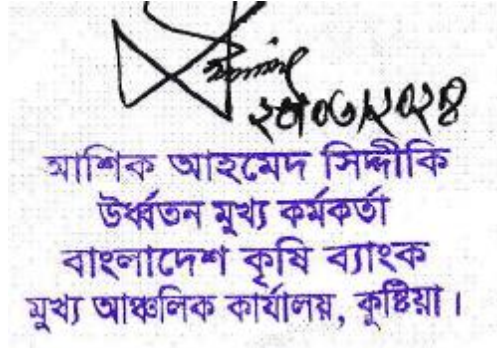 ২৫/০৬/২০২৪
আশিক আহমেদ সিদ্দীকি
উর্ধ্বতন মুখ্য কর্মকর্তা
বাংলাদেশ কৃষি ব্যাংক
মুখ্য আঞ্চলিক কার্যালয়, কুষ্টিয়া।